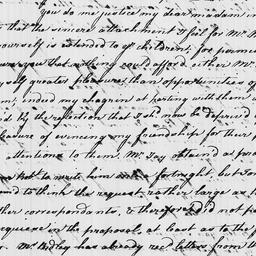 You do me justice my dear madam in
that the sincere attachment I feel for Mr.
yourself is extended to yr children; for permit
assure you that nothing could afford either Mr.
myself greater pleasures than opportunities of
indeed my chagrin at parting with them
by the reflection that I shd now be deprived
pleasure of evincing my friendship for their
attentions to them. Mr. Jay obtained a
not to write him a fortnight, but
to think the request rather large as
other correspondants, & therefore did not
acquiesce in the proposal, at least as to the
Mr. Ridley has already recd letters from